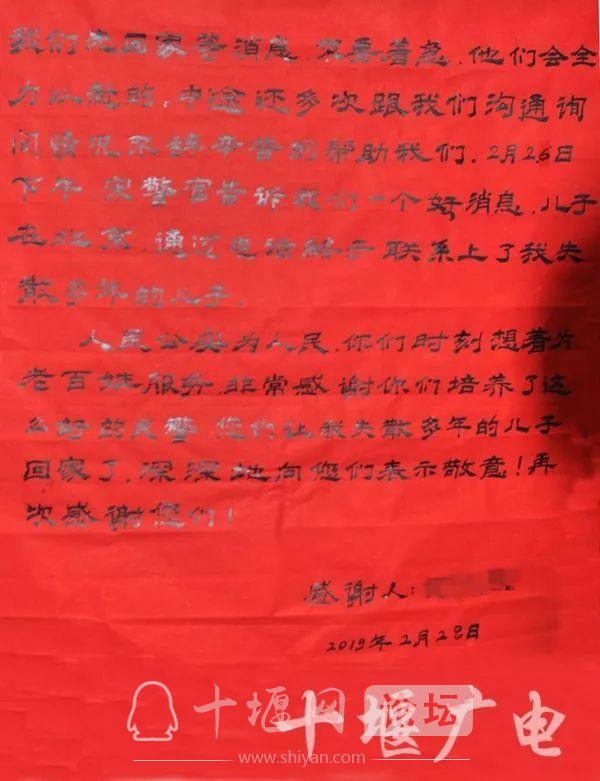 我们先回家等消息，不要着急，他们会全
力以赴的，中途还多次跟我们沟通询
问情况不辞辛苦的帮助我们，2月26日
下午，宋警官告诉我们一个好消息，儿子
在北京，通过电话终于联系上了我失
散多年的儿子。
人民公安为人民，你们时刻想着为
老百姓服务，非常感谢你们培养了这
么好的民警，您们让我失散多年的儿子
回家了，深深地向您们表示敬意！再
次感谢您们！
感谢人：
2019年2月28日
十堰网 论坛
十堰广电
www.shiyan.com